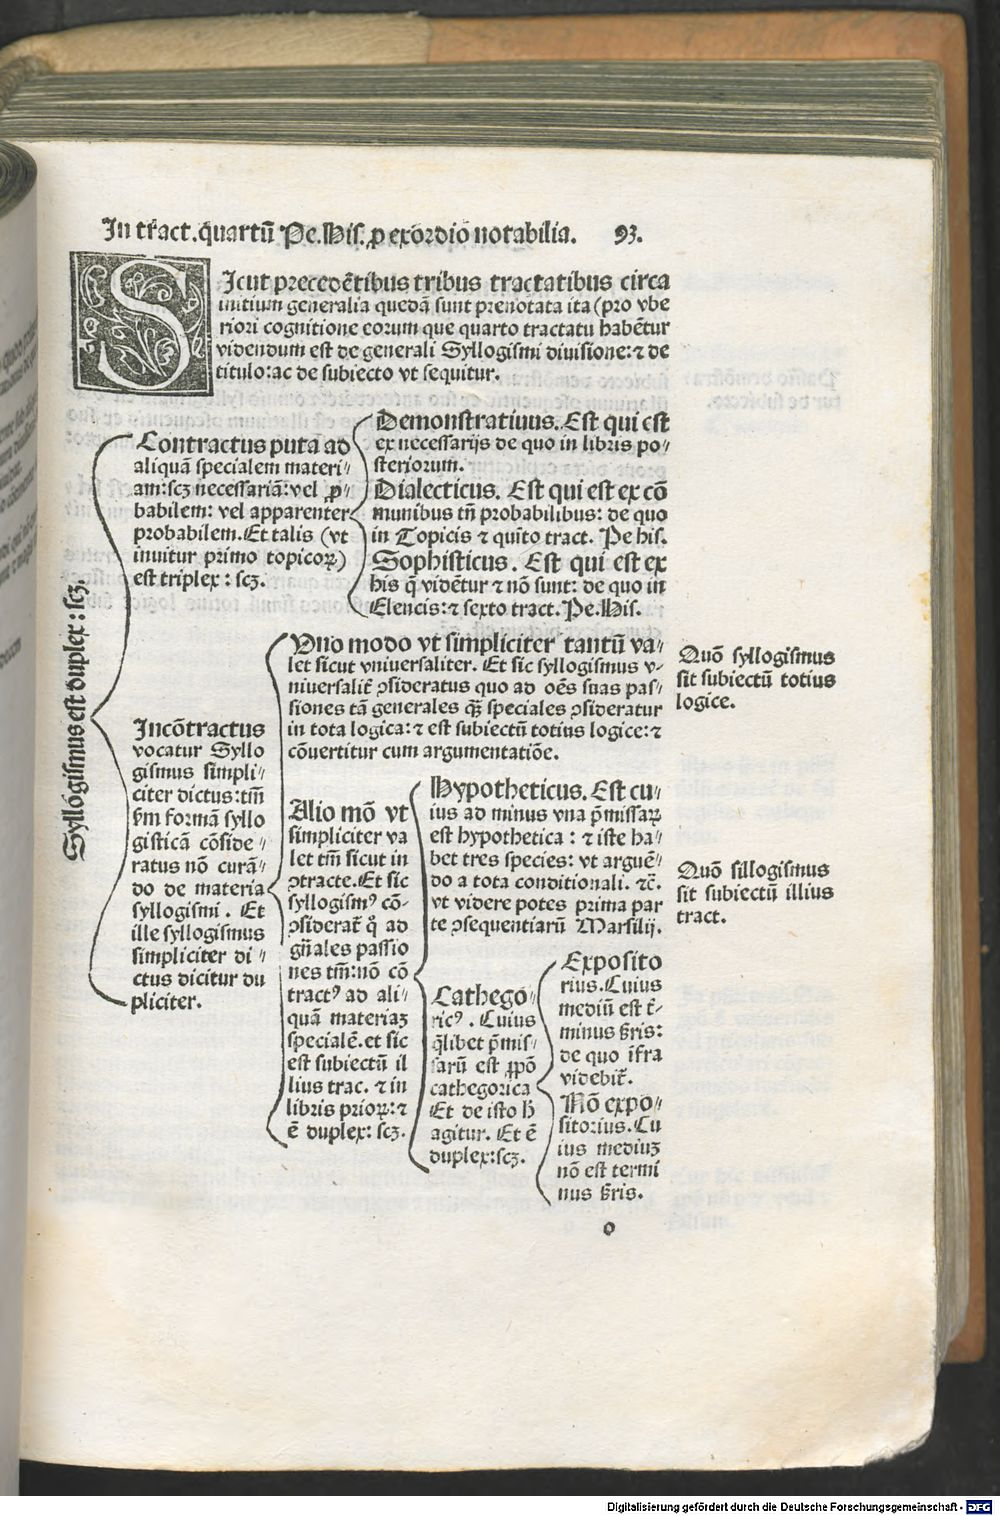 In tract. quartū Pe. His. p exordio notabilia. 93.
SIcut precedētibus tribus tractatibus circa
initium generalia quedā sunt prenotata ita (pro vbe
riori cognitione eorum que quarto tractatu habētur
videndum est de generali Syllogismi diuisione: ⁊ de
titulo: ac de subiecto vt sequitur.
Syllogismus est duplex: scꝫ.
Contractus puta ad
aliquā specialem materi⸗
am: scꝫ necessariā: vel ꝓ⸗
babilem: vel apparenter
probabilem. Et talis (vt
innuitur primo topicoꝝ)
est triplex: scꝫ.
Demonstratiuus. Est qui est
ex necessarijs de quo in libris po⸗
steriorum.
Dialecticus. Est qui est ex cō
munibus tñ probabilibus: de quo
in Topicis ⁊ quīto tract. Pe his.
Sophisticus. Est qui est ex
his q̄ vidētur ⁊ nō sunt: de quo in
Elencis: ⁊ sexto tract. Pe. His.
Incōtractus
vocatur Syllo
gismus simpli⸗
citer dictus: tm̄
ẜm formā syllo
gisticā cōside⸗
ratus nō curā⸗
do de materia
syllogismi. Et
ille syllogismus
simpliciter di⸗
ctus dicitur du
pliciter.
Vno modo vt simpliciter tantū va⸗
let sicut vniuersaliter. Et sic syllogismus v⸗
niuersalit̄ ꝯsideratus quo ad oēs suas pas⸗
siones tā generales q̄ꝫ speciales ꝯsideratur
in tota logica: ⁊ est subiectū totius logice: ⁊
cōuertitur cum argumentatiōe.
Quō syllogismus
sit subiectū totius
logice.
Alio mō vt
simpliciter va
let tm̄ sicut in
ꝯtracte. Et sic
syllogismꝰ cō⸗
ꝯsiderat̄ q̊ ad
gn̄ales passio
nes tm̄: nō cō
tractꝰ ad ali⸗
quā materiaꝫ
specialē. et sic
est subiectū il
lius trac. ⁊ in
libris prioꝝ: ⁊
ē duplex: scꝫ.
Hypotheticus. Est cu⸗
ius ad minus vna p̄missaꝝ
est hypothetica: ⁊ iste ha⸗
bet tres species: vt arguē⸗
do a tota conditionali. ⁊c̄.
vt videre potes prima par
te ꝯsequentiarū Marsilij.
Quō sillogismus
sit subiectū illius
tract.
Cathego⸗
ricꝰ. Cuius
q̄libet p̄mis⸗
sarū est ꝓpō
cathegorica
Et de isto h̄
agitur. Et ē
duplex: scꝫ.
Exposito
rius. Cuius
mediū est t̄⸗
minus ẜris:
de quo īfra
videbit̄.
Nō expo⸗
sitorius. Cu
ius mediuꝫ
nō est termi
nus ẜris.
o
Digitalisierung gefördert durch die Deutsche Forschungsgemeinschaft - DFG